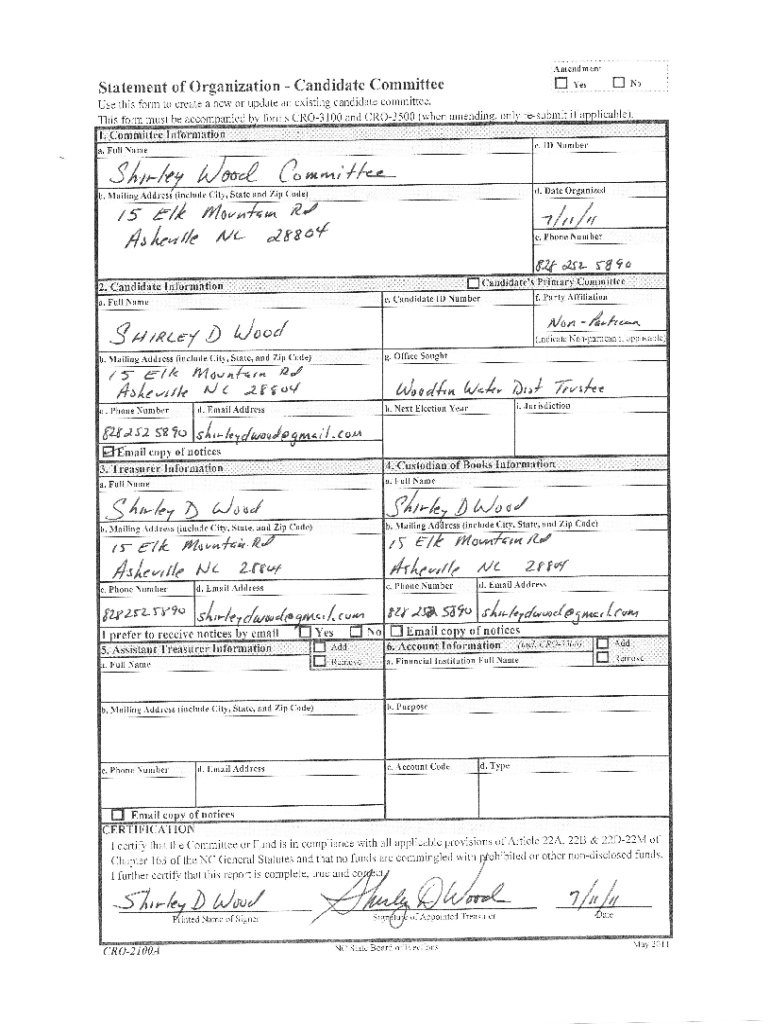 Amendment
Statement of Organization - Candidate Committee
☐ Yes ☐ No
Use this form to create a new or update an existing candidate committee.
This form must be accompanied by forms CRO-3100 and CRO-3500 (when amending, only re-submit if applicable).
1. Committee Information
a. Full Name
c. ID Number
Shirley Wood Committee
b. Mailing Address (include City, State and Zip Code)
d. Date Organized
15 Elk Mountain Rd
7/11/11
Asheville NC 28804
e. Phone Number
828 252 5890
2. Candidate Information
☐ Candidate's Primary Committee
a. Full Name
e. Candidate ID Number
f. Party Affiliation
SHIRLEY D Wood
Non-Partisan
(indicate Non-partisan if applicable)
b. Mailing Address (include City, State, and Zip Code)
g. Office Sought
15 Elk Mountain Rd
Asheville NC 28804
Woodfin Water Dist Trustee
c. Phone Number
d. Email Address
h. Next Election Year
i. Jurisdiction
828 252 5890
shirleydwood@gmail.com
Email copy of notices
3. Treasurer Information
4. Custodian of Books Information
a. Full Name
a. Full Name
Shirley D Wood
Shirley D Wood
b. Mailing Address (include City, State, and Zip Code)
b. Mailing Address (include City, State, and Zip Code)
15 Elk Mountain Rd
15 Elk Mountain Rd
Asheville NC 28804
Asheville NC 28804
c. Phone Number
d. Email Address
c. Phone Number
d. Email Address
828 252 5890
shirleydwood@gmail.com
828 252 5890
shirleydwood@gmail.com
I prefer to receive notices by email ☐ Yes ☐ No
☐ Email copy of notices
5. Assistant Treasurer Information
☐ Add
6. Account Information
☐ Add
a. Full Name
☐ Remove
a. Financial Institution Full Name
☐ Remove
b. Mailing Address (include City, State, and Zip Code)
b. Purpose
c. Phone Number
d. Email Address
c. Account Code
d. Type
☐ Email copy of notices
CERTIFICATION
I certify that the Committee or Fund is in compliance with all applicable provisions of Article 22A, 22B & 22D-22M of
Chapter 163 of the NC General Statutes and that no funds are commingled with prohibited or other non-disclosed funds.
I further certify that this report is complete, true and correct.
Shirley D Wood
Shirley D Wood
7/11/11
Printed Name of Signer
Signature of Appointed Treasurer
Date
CRO-2100A
NC State Board of Elections
May 2011